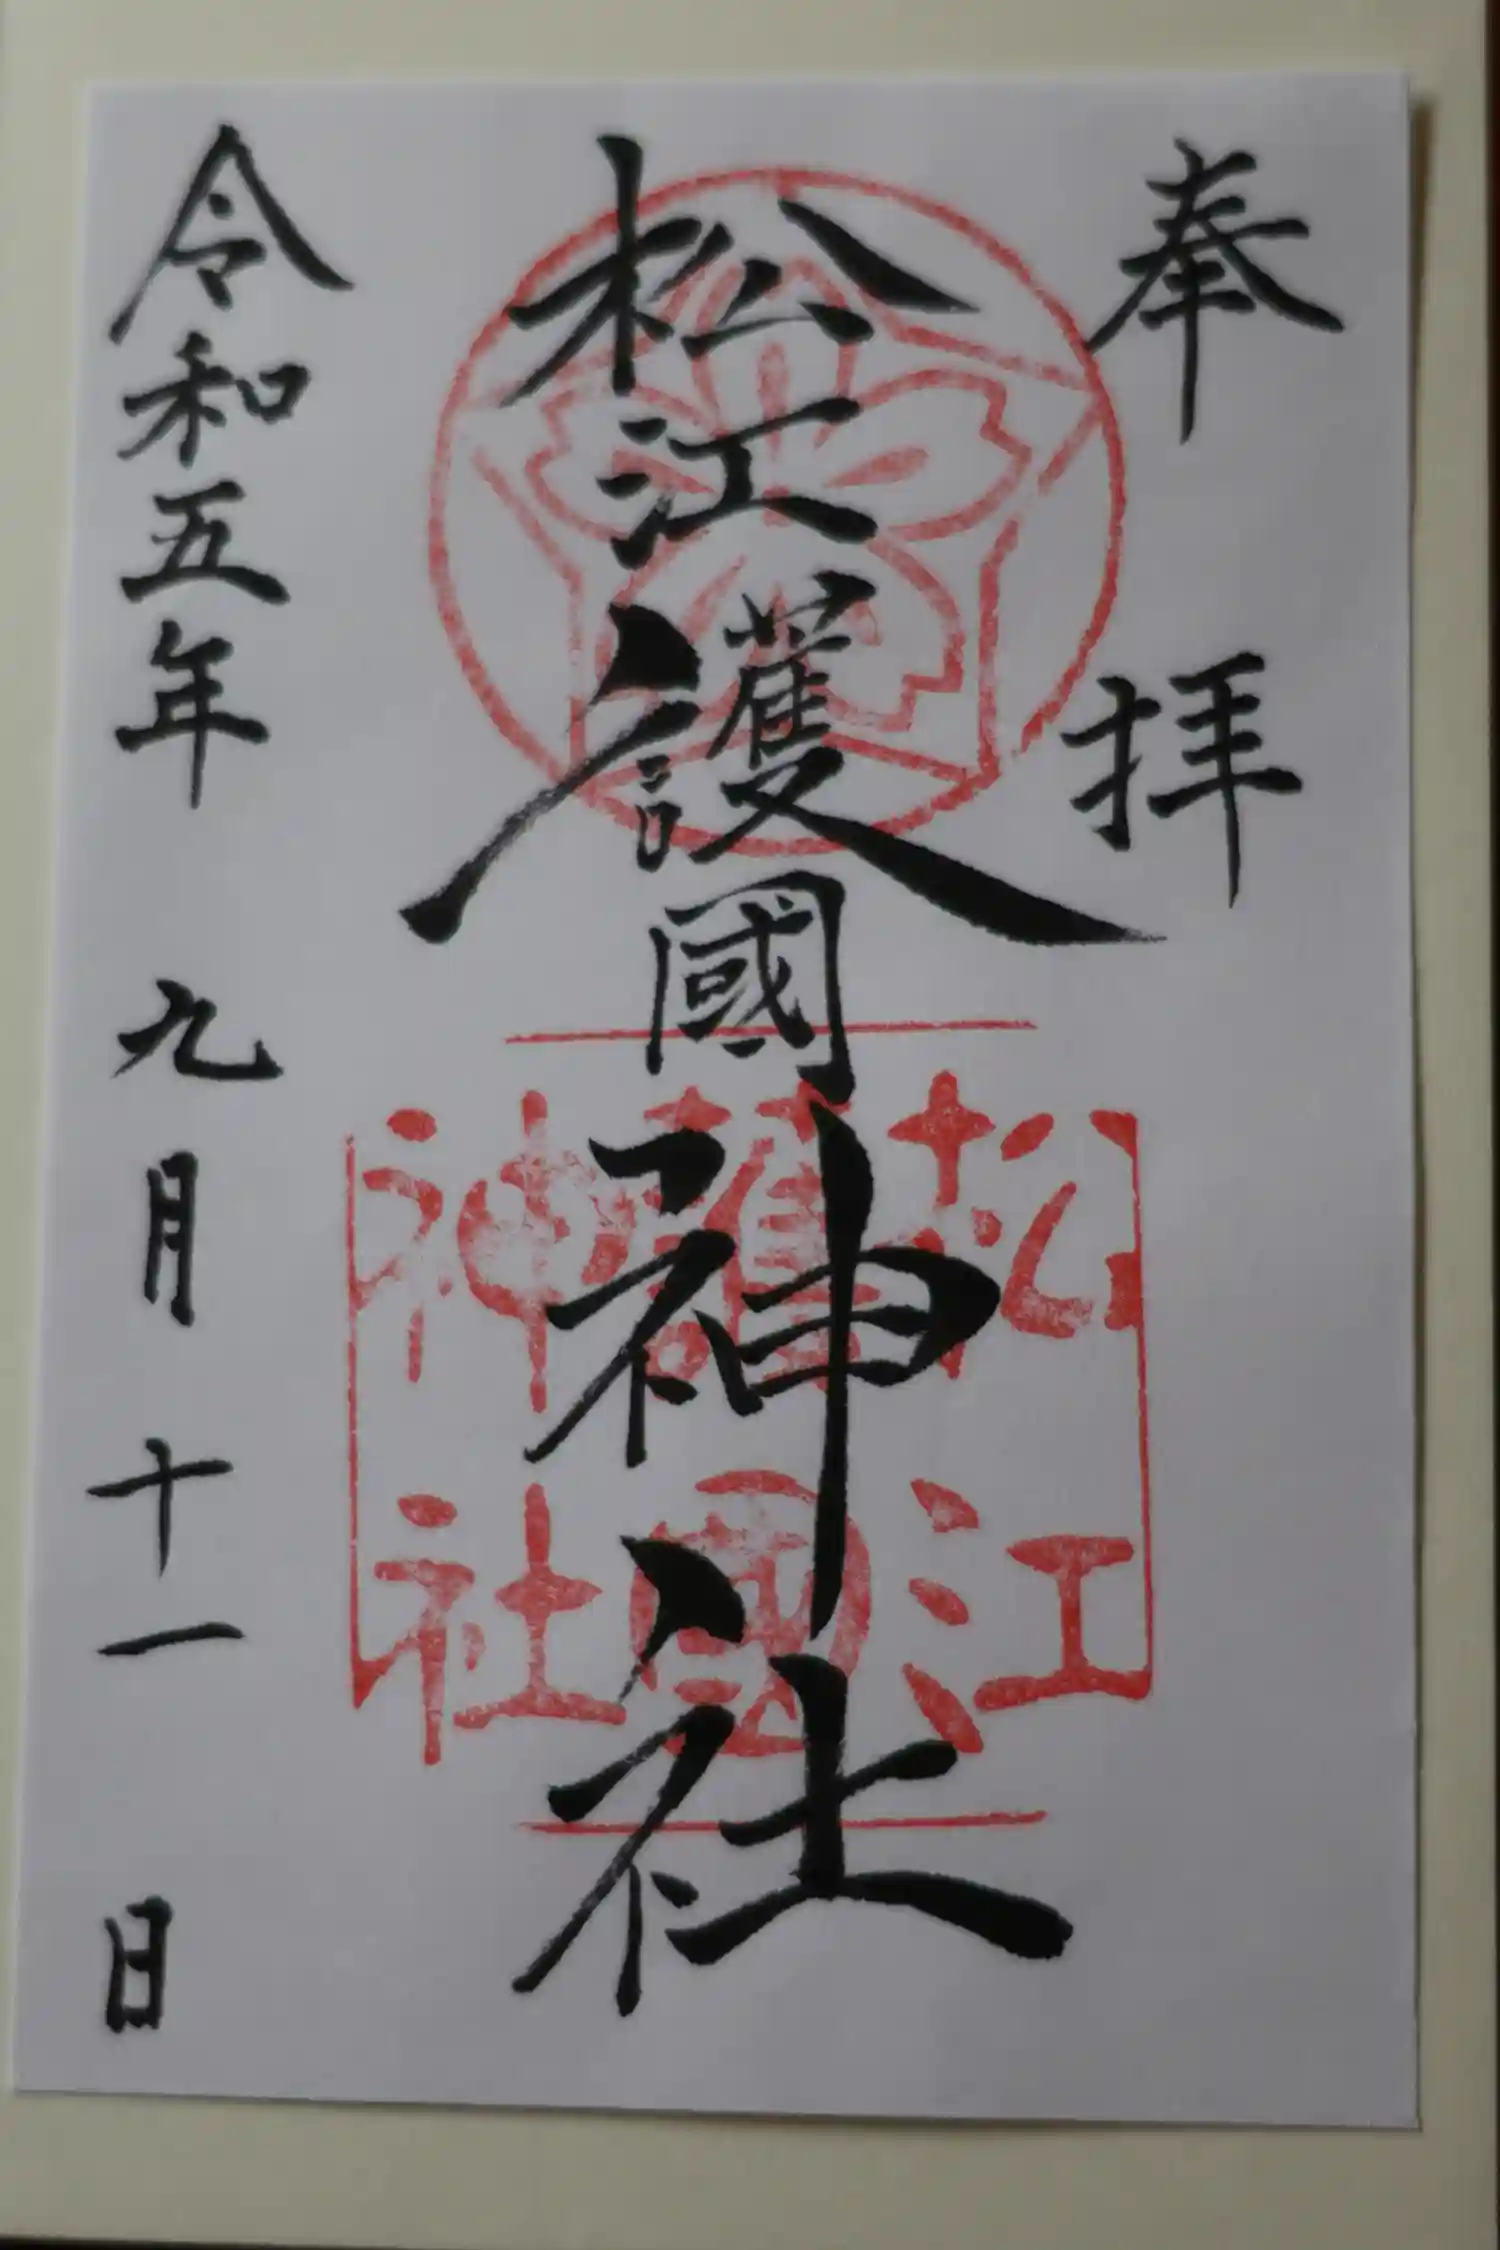 奉拝
松江護國神社
松江
護國
神社
令和五年九月十一日